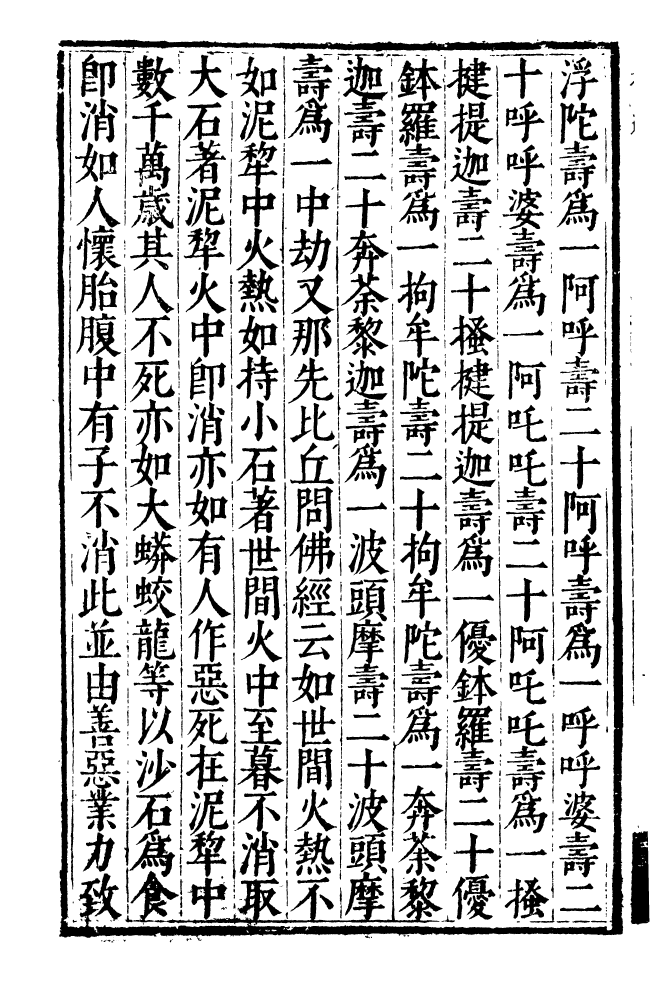 浮陀壽爲一阿呼壽二十阿呼壽爲一呼呼婆壽二
十呼呼婆壽爲一阿吒吒壽二十阿吒吒壽爲一搔
揵提迦壽二十搔揵提迦壽爲一優鉢羅壽二十優
鉢羅壽爲一拘牟陀壽二十拘牟陀壽爲一奔荼黎
迦壽二十奔荼黎迦壽爲一波頭摩壽二十波頭摩
壽爲一中劫又那先比丘問佛經云如世間火熱不
如泥犁中火熱如持小石著世間火中至暮不消取
大石著泥犁火中卽消亦如有人作惡死在泥犁中
數千萬歲其人不死亦如大蟒蛟龍等以沙石爲食
卽消如人懷胎腹中有子不消此並由善惡業力致